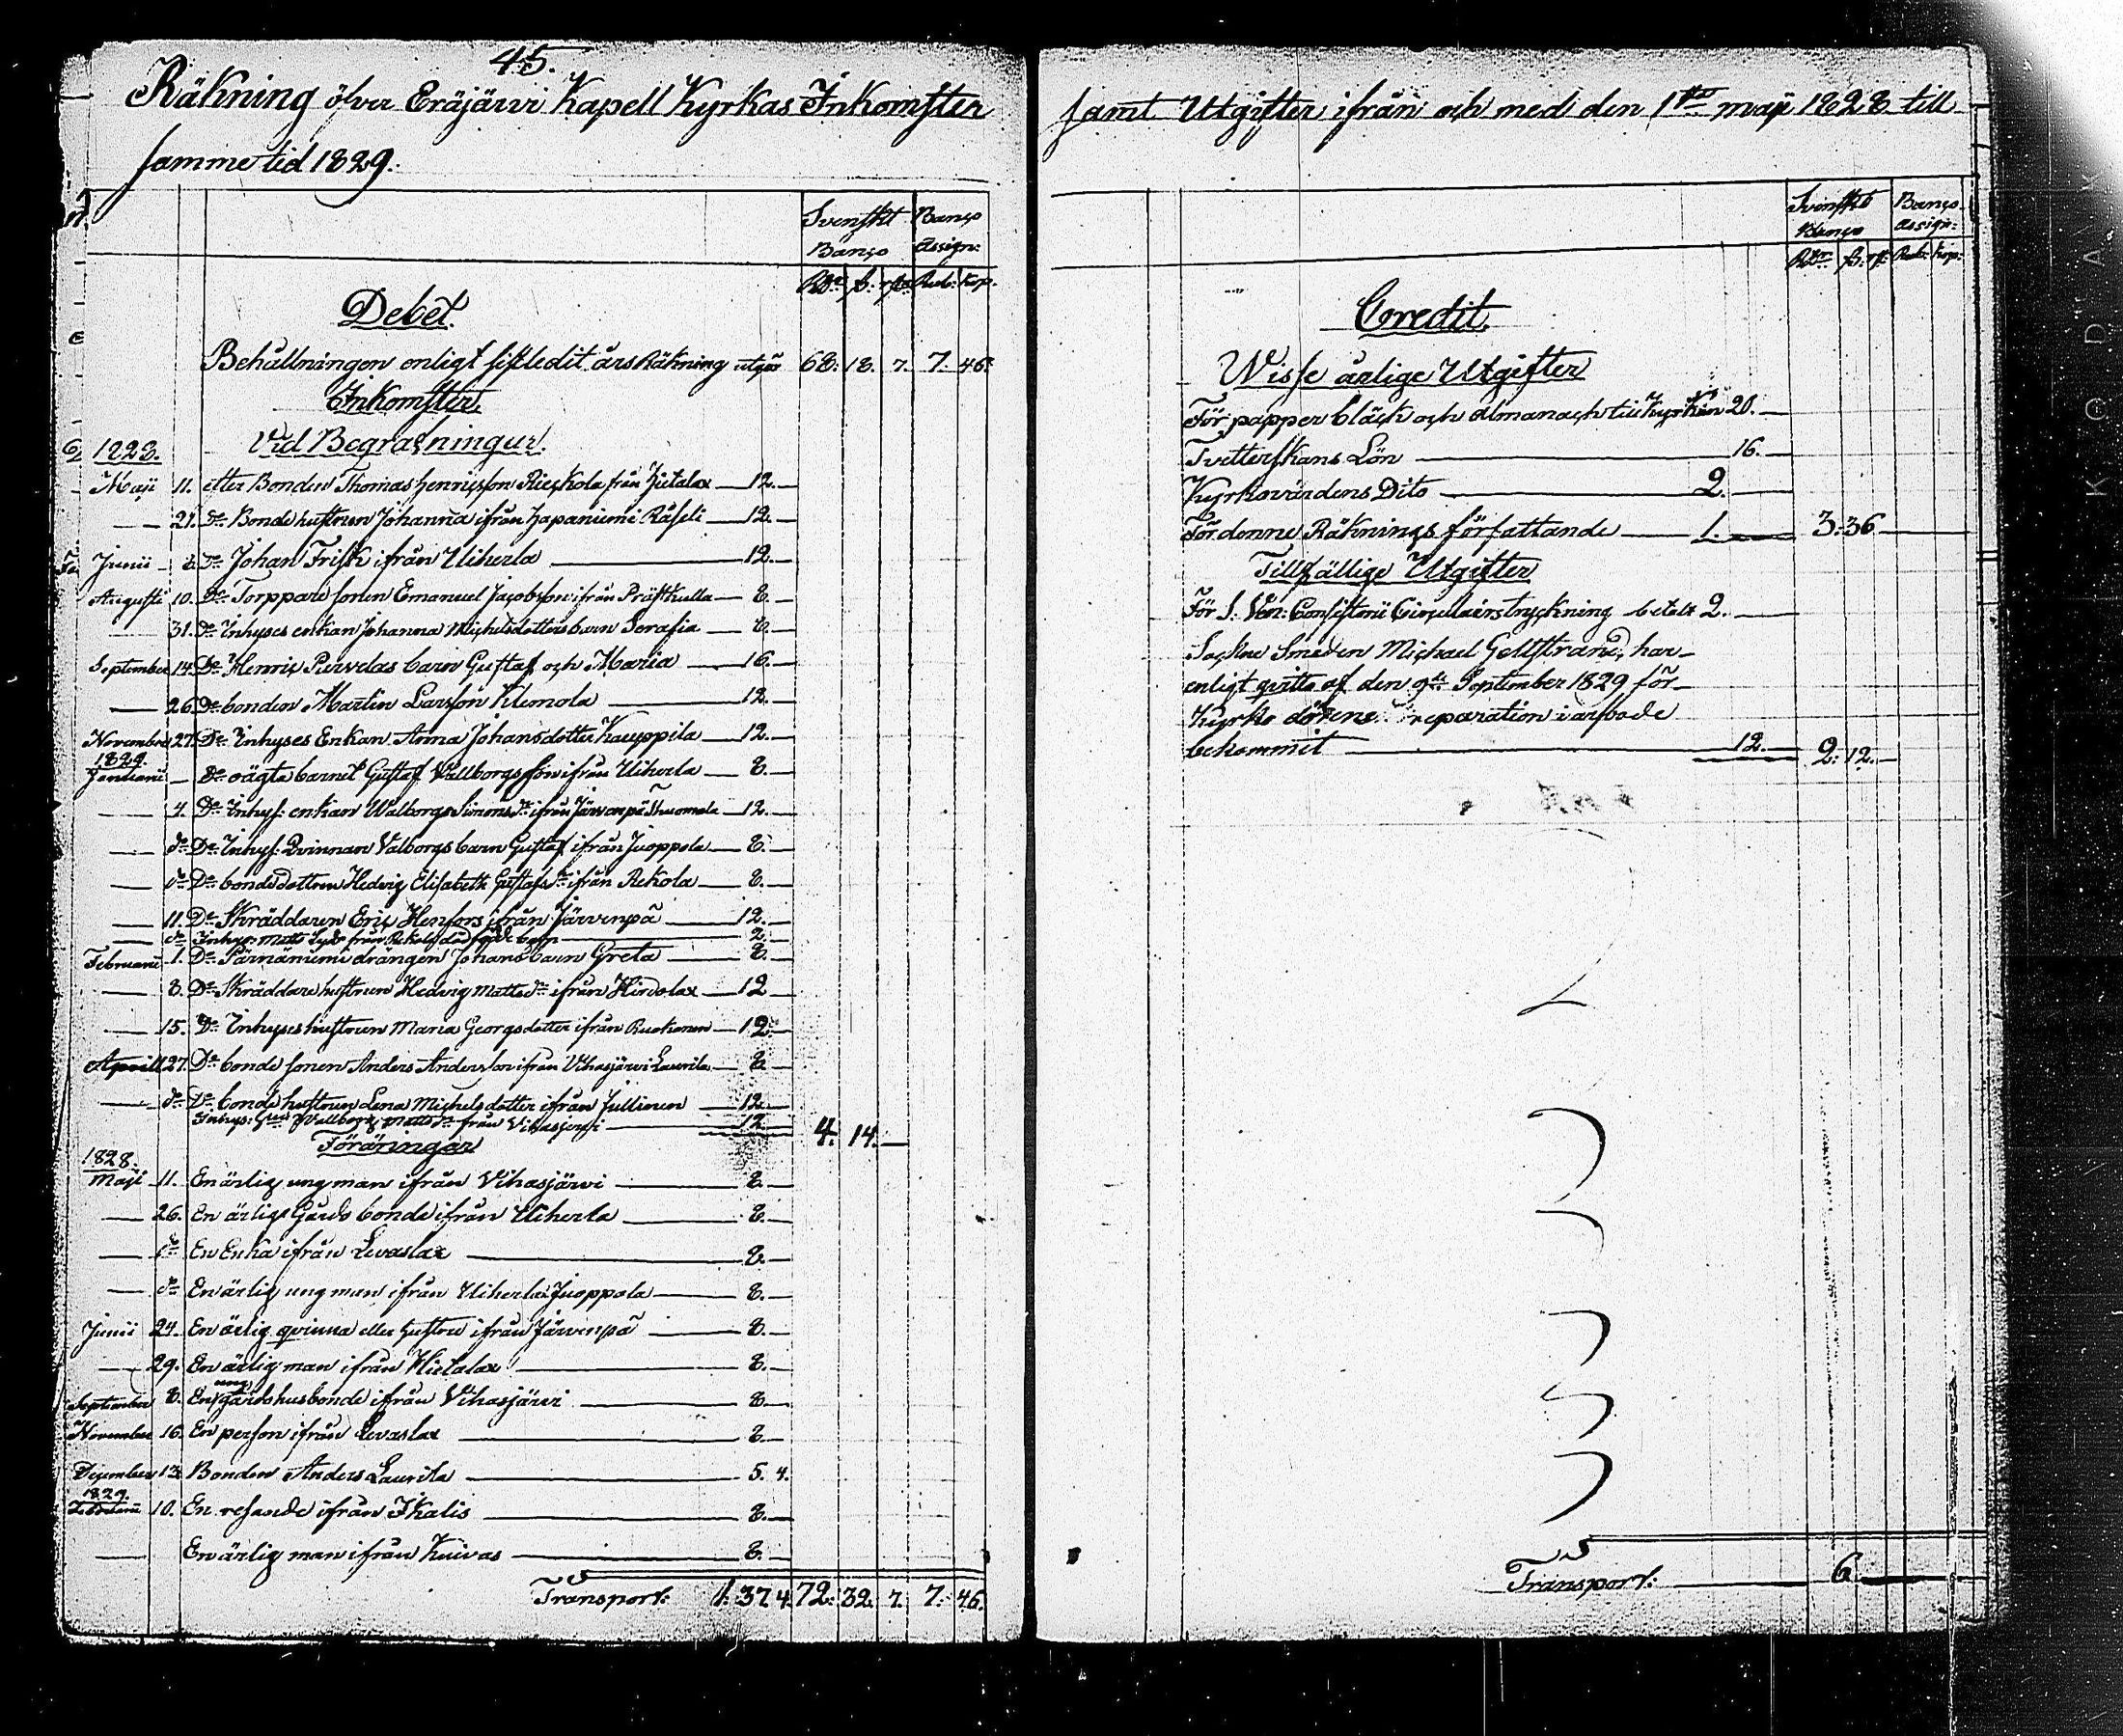 45.
Räkning öfver Eräjärvi Kapell Kyrkas Inkomster
samme tid 1829.
Svenskt Banco
Banco Assign:
Rdr ß. rst. Rub: kop.
Debet.
Behållningen enligt sistledit års Räkning utgör 68. 18. 7. 7. 46.
Inkomster.
Vid Begrafningar.
1828.
Maji 11. efter Bonden Thomas Henricsson Rieskola från Hietalax — 12. —
— 21. Do Bonde hustrun Johanna ifrån Hapaniemi Räfeli — 12. —
Junii — 8. Do Johan Frisk ifrån Uiherla — 12. —
Augusti 10. Do Torppare sonen Emanuel Jacobsson ifrån Prästkulla — 8. —
31. Do Inhyses enkan Johanna Michelsdotters barn Serafia — 8. —
September 14. Do Henric Pervolas barn Gustaf och Maria — 16. —
— 26. Do bonden Martin Larsson Klemola — 12. —
November 27. Do Inhyses Enkan Anna Johansdotter Kauppila — 12. —
1829.
Januarii — Do oägta barnet Gustaf Vallborgsson ifrån Uiherla — 8. —
— 4. Do Inhys: enkan Walborg Simonsdr ifrån Järvenpä Thuomola — 12. —
— do Do Inhys: Qvinnan Valborgs barn Gustaf ifrån Juoppola — 8. —
— do Do bondedottren Hedvig Elisabeth Gustafsdr ifrån Rekola — 8. —
— 11. Do Skräddaren Eric Henfors ifrån Järvenpä — 12. —
— do Inhys: Matts från Rekola dödfödde barn — 2. —
Februarii 1. Do Pärnäniemi drängen Johans barn Greta — 8. —
— 8. Do Skräddare hustrun Hedvig Mattsdr ifrån Hirvolax — 12 —
— 15. Do Inhyses hustrun Maria Georgsdotter ifrån Ruokonen — 12. —
Aprill 27. Do bonde sonen Anders Andersson ifrån Vihasjärvi Laurila — 8. —
— do Do bonde hustrun Lena Michelsdotter ifrån Jullinen — 12. —
Inhys: Vallborg Mattsdr från Vihasjervi — 12. — 4. 14. —
Föräringar
1828.
Maji 11. En ärlig ung man ifrån Vihasjärvi — 8. —
— 26. En ärlig Gårds bonde ifrån Uiherla — 8. —
— do En Enka ifrån Levaslax — 8. —
— do En ärlig ung man ifrån Uiherla Juoppola — 8. —
Junii 24. En ärlig qvinna eller hustru ifrån Järvenpä — 8. —
— 29. En ärlig man ifrån Hietalax — 8. —
September 8. En ung gårdshusbonde ifrån Vihasjärvi — 8. —
November 16. En person ifrån Levaslax — 8. —
December 13. Bonden Anders Laurila — 5. 4.
1829.
10. En resande ifrån Ikalis — 8. —
— En ärlig man ifrån Kuivas — 8. —
Transport: 1. 37. 4. 72. 32. 7. 7. 46.
samt Utgifter ifrån och med den 1sta maji 1828 till
Svenskt Banco
Banco Assign:
Rdr ß. rst: Rub: kop:
Credit.
Wisse årlige Utgifter
För papper bläck och Almanach till Kyrkan 20. —
Tvetterskans Lön — 16. —
Kyrkovärdens Dito — 2. —
För denne Räknings författande — 1. — 3: 36 —
Tillfällige Utgifter
För S. Ven: Consistorii Circulairs tryckning betalt 2. —
Sockne Smeden Michael Gellstrand, har
enligt qvitto af den 9de September 1829 för
Kyrko dörens reparation i arfvode
bekommit — 12. — 2. 12. —
Transport: — 6. —
KODAK